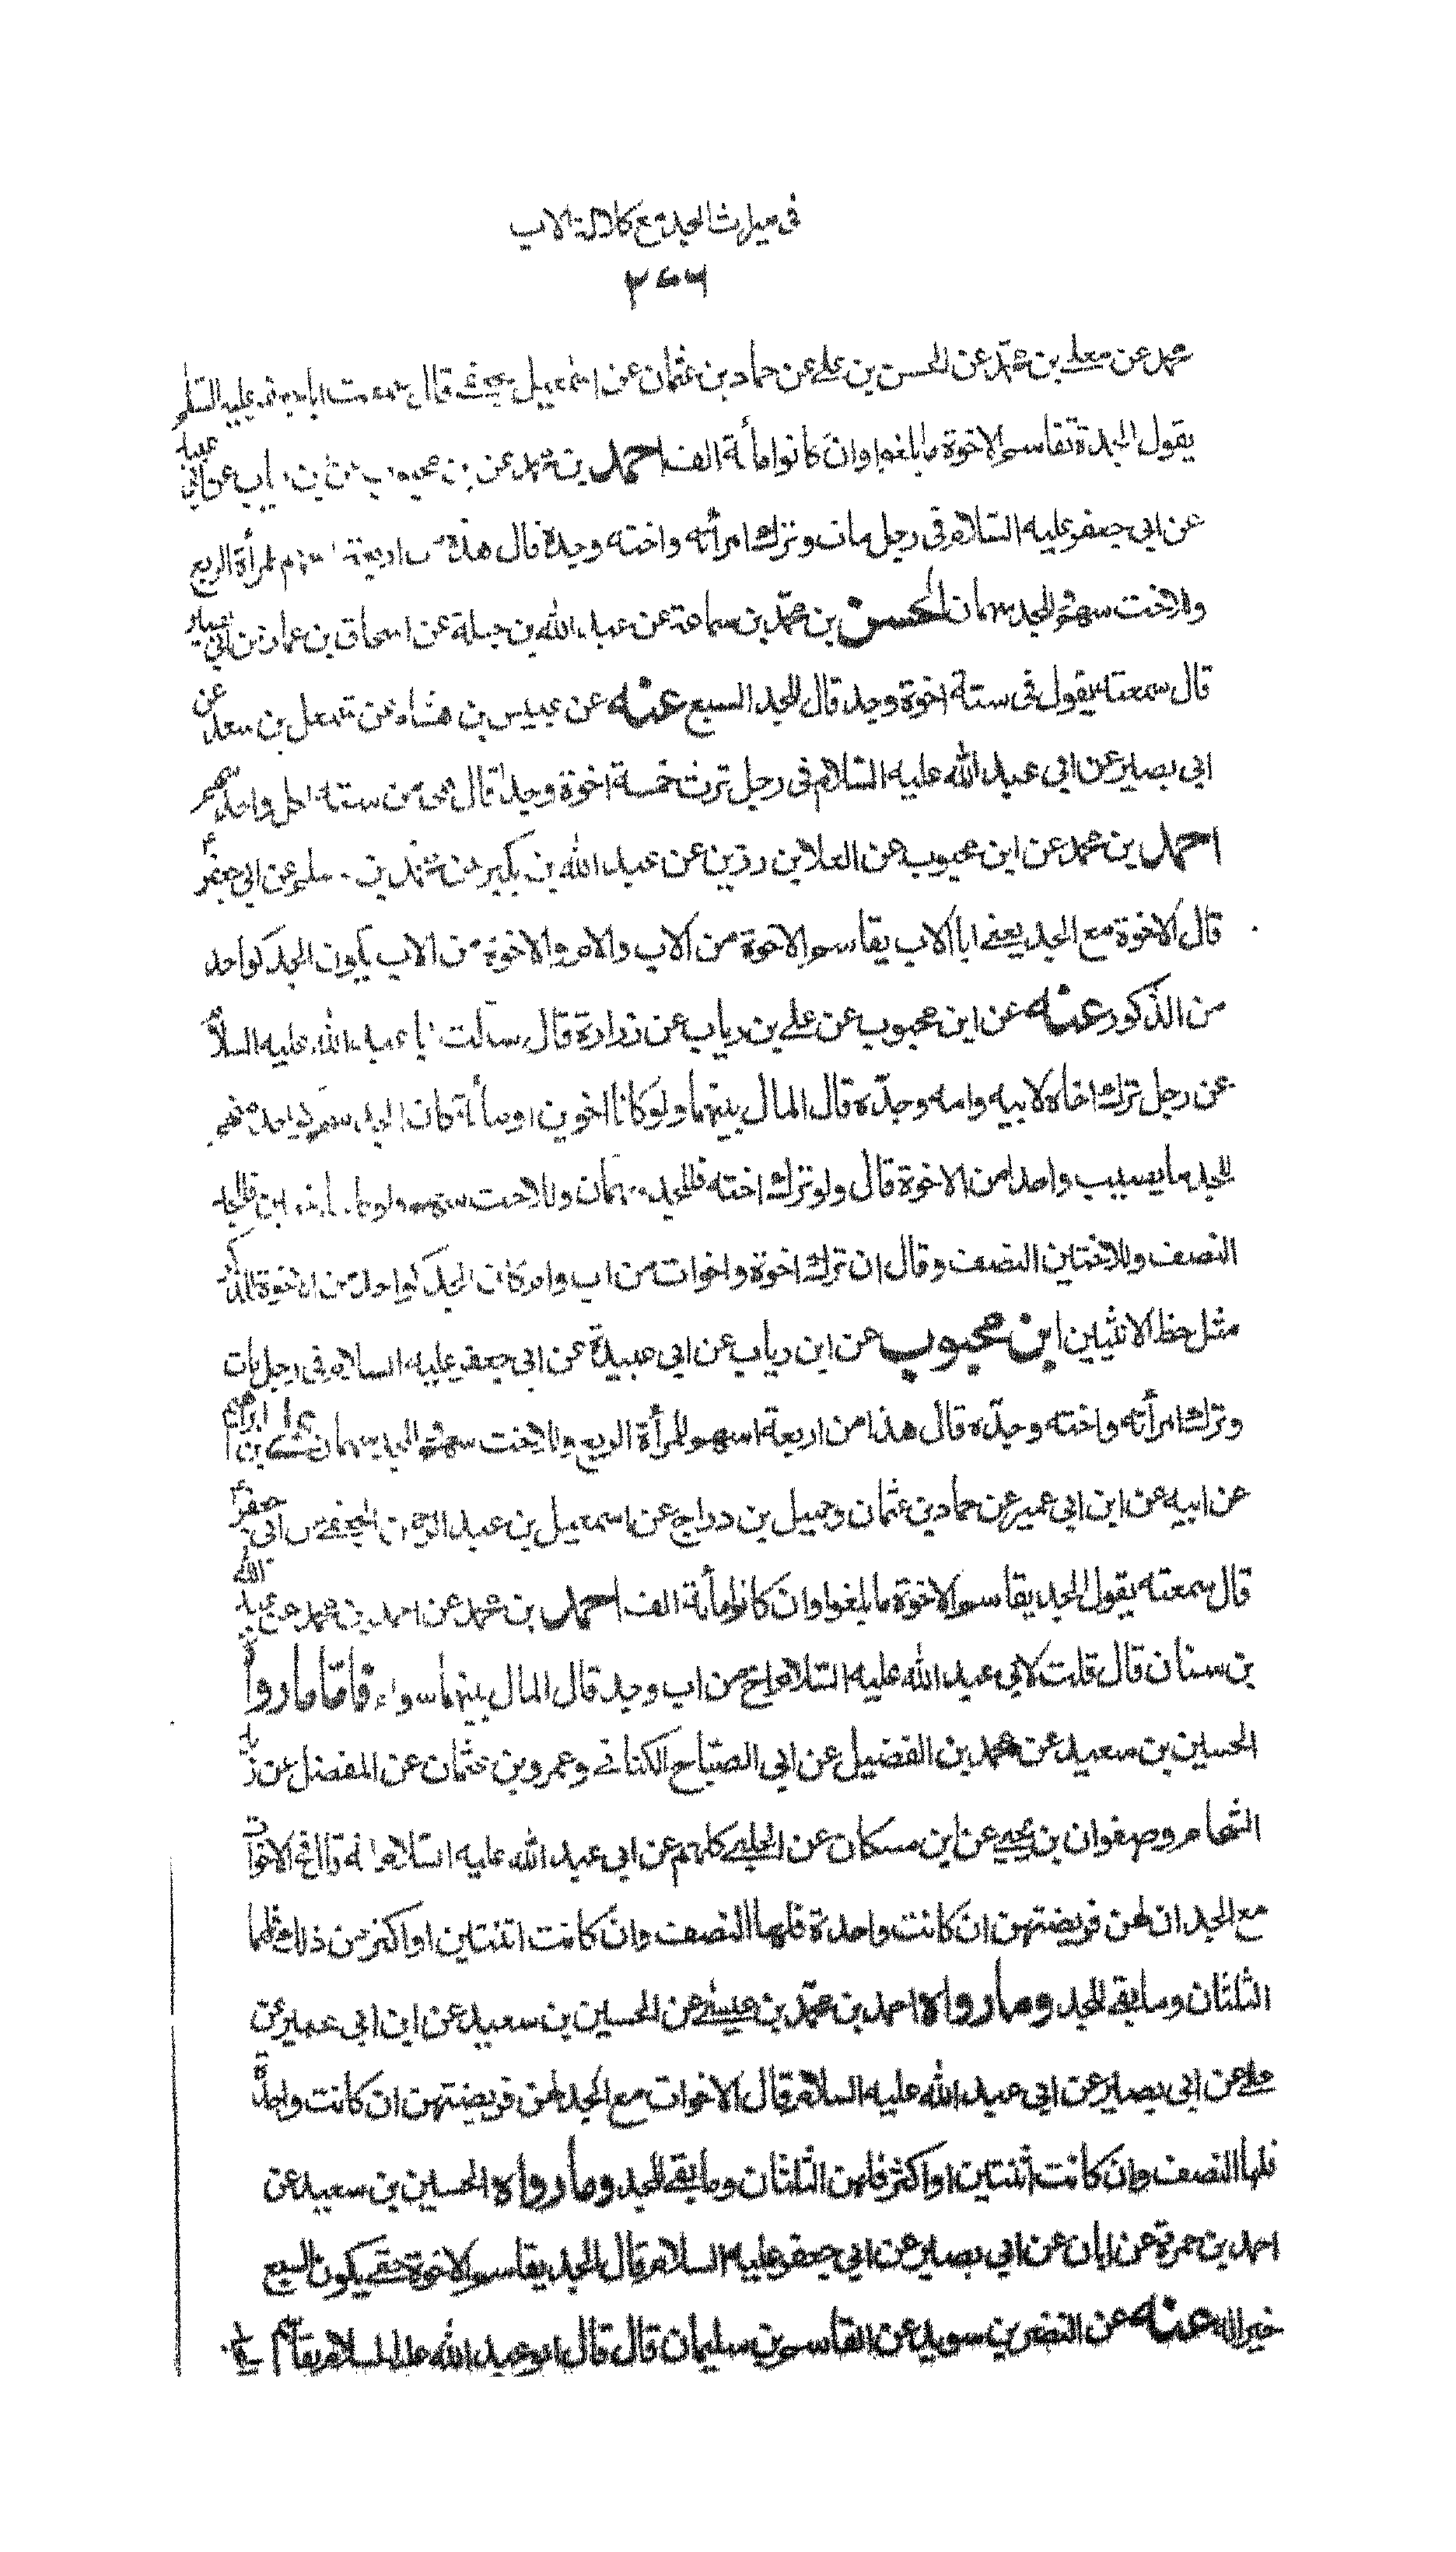 في ميراث الجد مع كلالة الاب
٢٧٦
محمد عن معلى بن محمد عن الحسن بن علي عن حماد بن عثمان عن اسمعيل الجعفي قال سمعت ابا جعفر عليه السلم
يقول الجد يقاسم الاخوة ما بلغوا وان كانوا مأة الف احمد بن محمد عن بن محبوب عن بن رياب عن ابي عبيدة
عن ابي جعفر عليه السلام في رجل مات وترك امرأته واخته وجده قال هذه من اربعة اسهم للمرأة الربع
وللاخت سهم وللجد سهمان الحسن بن محمد بن سماعة عن عبد الله بن جبلة عن اسحاق بن عمار عن ابي بصير
قال سمعته يقول في ستة اخوة وجد قال للجد السبع عنه عن عبيس بن هشام عن مشمعل بن سعد عن
ابي بصير عن ابي عبد الله عليه السلام في رجل ترك خمسة اخوة وجدا قال هي من ستة لكل واحد سهم
احمد بن محمد عن ابن محبوب عن العلا بن رزين عن عبد الله بن بكير عن محمد بن مسلم عن ابي جعفر
قال الاخوة مع الجد يعني ابا الاب يقاسم الاخوة من الاب والام والاخوة من الاب يكون الجد كواحد
من الذكور عنه عن ابن محبوب عن علي بن رياب عن زرارة قال سألت ابا عبد الله عليه السلام
عن رجل ترك اخاه لابيه وامه وجده قال المال بينهما ولو كانا اخوين او مأة كان الجد معهم كواحد منهم
للجد ما يصيب واحدا من الاخوة قال ولو ترك اخته فللجد سهمان وللاخت سهم ولو كانتا اختين فللجد
النصف وللاختين النصف وقال ان ترك اخوة واخوات من اب وام كان الجد كواحد من الاخوة للذكر
مثل حظ الانثيين ابن محبوب عن ابن رياب عن ابي عبيدة عن ابي جعفر عليه السلام في رجل مات
وترك امرأته واخته وجده قال هذا من اربعة اسهم للمرأة الربع وللاخت سهم وللجد سهمان علي بن ابراهيم
عن ابيه عن ابن ابي عمير عن حماد بن عثمان وجميل بن دراج عن اسمعيل بن عبد الرحمن الجعفي عن ابي جعفر
قال سمعته يقول الجد يقاسم الاخوة ما بلغوا وان كانوا مأة الف احمد بن محمد عن احمد بن محمد عن عبد الله
بن سنان قال قلت لابي عبد الله عليه السلام اخ من اب وجد قال المال بينهما سواء فاما ما رواه
الحسين بن سعيد عن محمد بن الفضيل عن ابي الصباح الكناني وعمرو بن عثمان عن المفضل عن زيد
الشحام وصفوان بن يحيى عن ابن مسكان عن الحلبي كلهم عن ابي عبد الله عليه السلام انه قال في الاخوات
مع الجد ان لهن فريضتهن ان كانت واحدة فلها النصف وان كانت اثنتين او اكثر من ذلك فلهما
الثلثان وما بقي للجد وما رواه احمد بن محمد بن عيسى عن الحسين بن سعيد عن ابن ابي عمير عن
علي عن ابي بصير عن ابي عبد الله عليه السلام قال الاخوات مع الجد لهن فريضتهن ان كانت واحدة
فلها النصف وان كانت اثنتين او اكثر فلهن الثلثان وما بقي للجد وما رواه الحسين بن سعيد عن
احمد بن حمزة عن ابان عن ابي بصير عن ابي جعفر عليه السلام قال الجد يقاسم الاخوة حتى يكون السبع
خيرا له عنه عن النضر بن سويد عن القاسم بن سليمان قال قال ابو عبد الله عليه السلام يقاسم